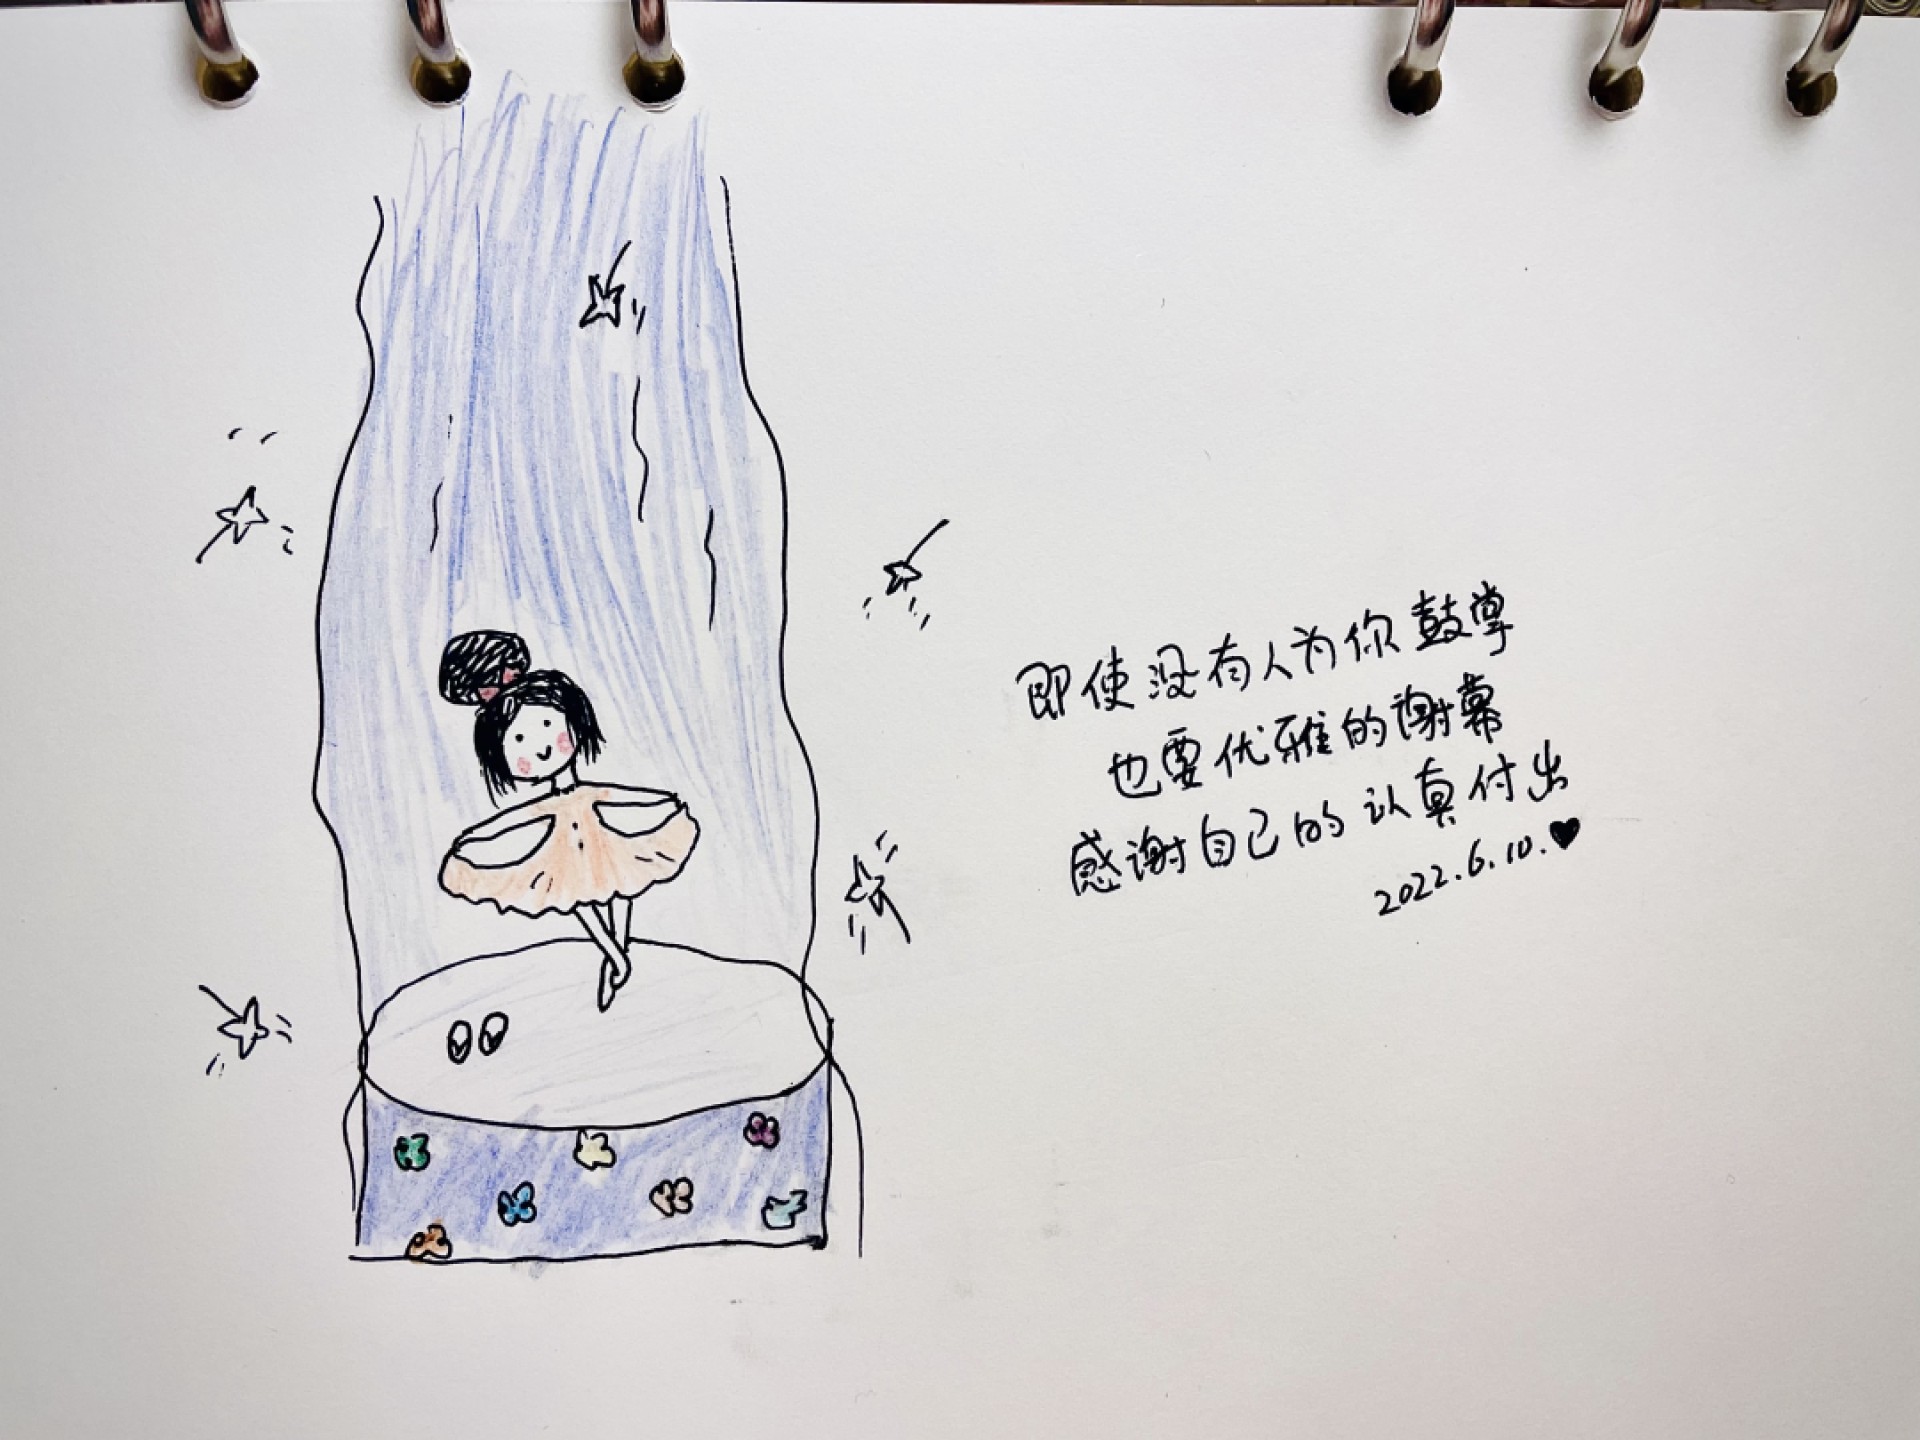 即使没有人为你鼓掌
也要优雅的谢幕
感谢自己的认真付出
2022.6.10.♥